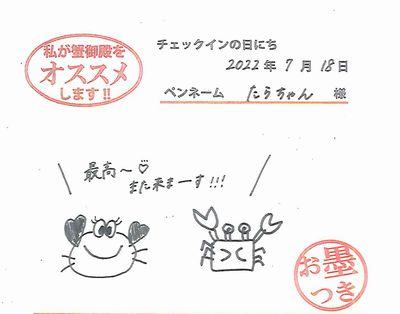 私が蟹御殿を
オススメ
します!!
チェックインの日にち
2022年7月18日
ペンネーム たらちゃん 様
最高〜♡
また来まーす!!!
お墨
つき